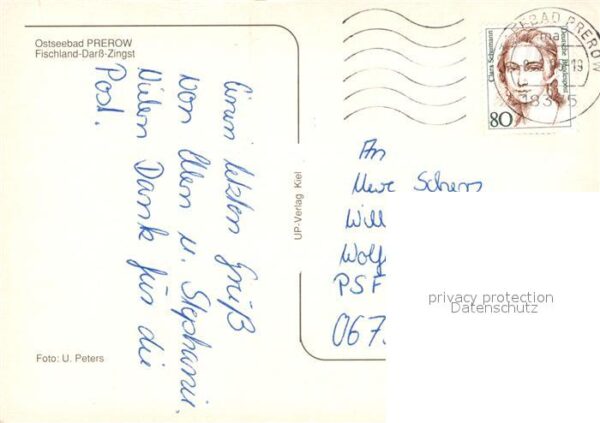 Ostseebad PREROW
Fischland-Darß-Zingst
Einen letzten Gruß
von Ellen u. Stephanie.
Vielen Dank für die
Post.
Foto: U. Peters
UP-Verlag Kiel
Clara Schumann
Deutsche Bundespost
80
EBAD PREROW
19
An
Uwe
Will
Wolf
PSF
067
privacy protection
Datenschutz